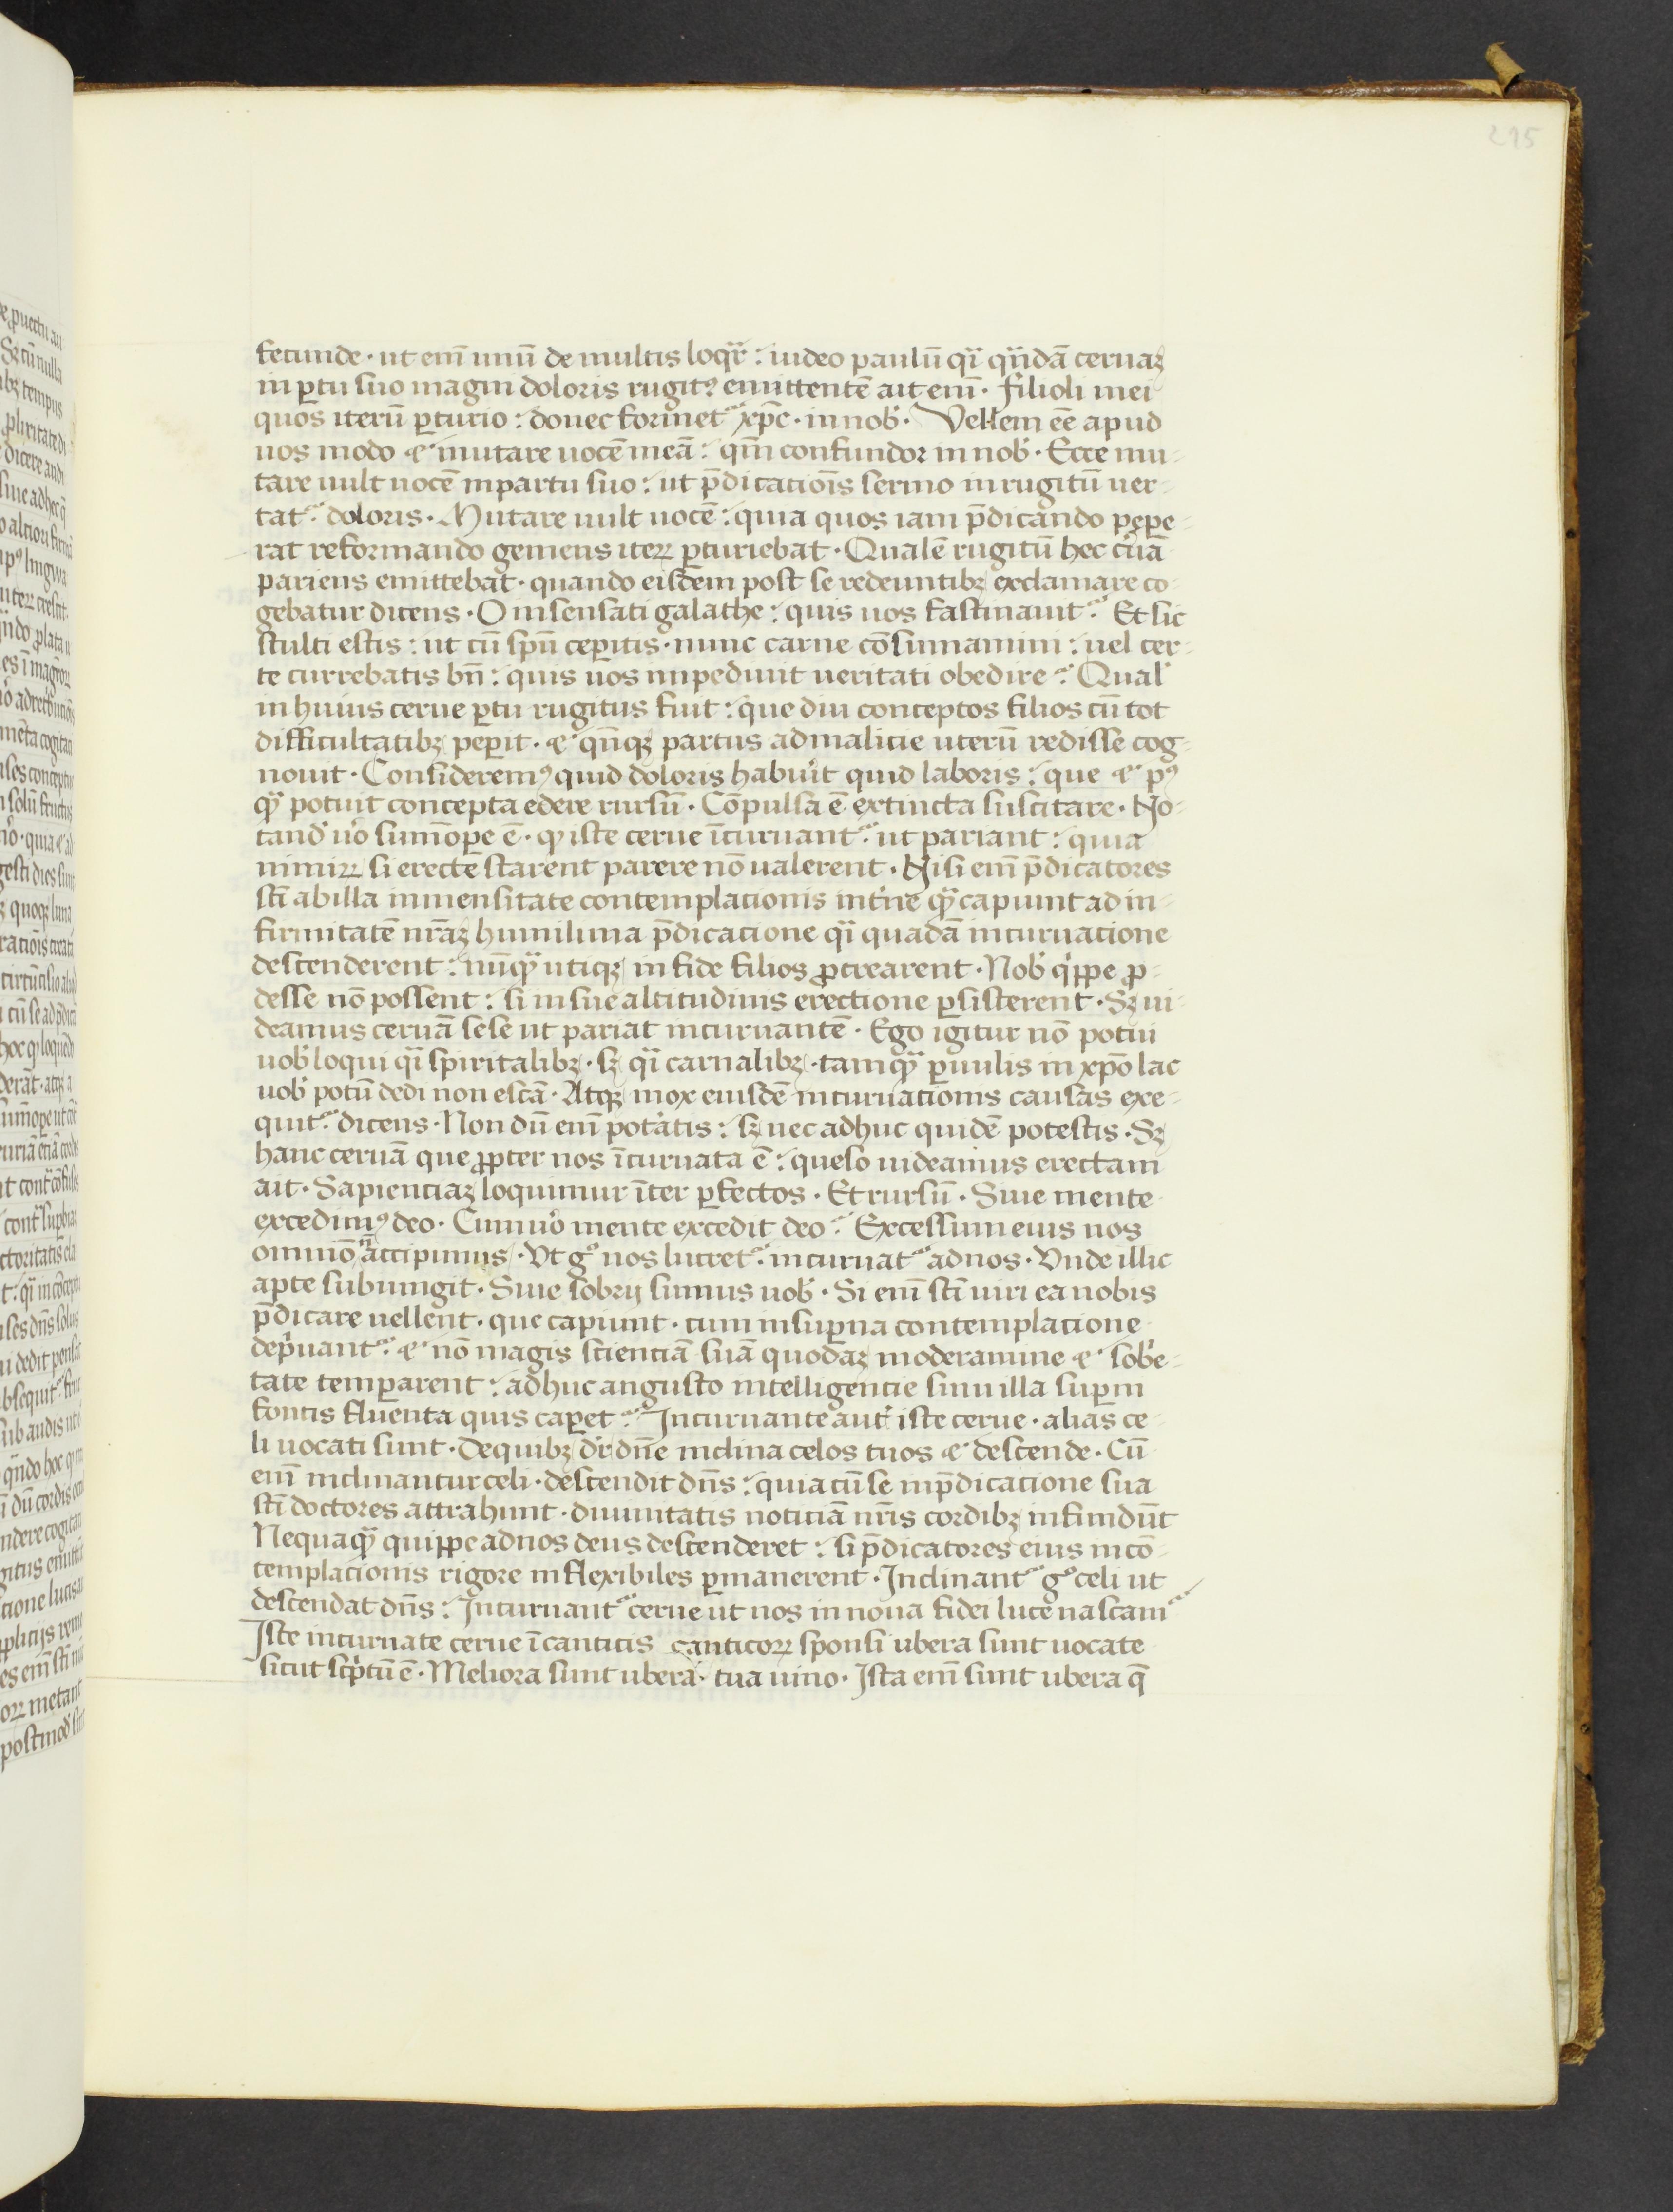 215
fecunde · ut em̄ unū de multis loqr̄ : uideo paulū qͥ qn̄dā ceruaʒ
in ꝑtu suo magni doloris rugitꝰ emittentē ait em̄ · filioli mei
quos iterū ꝑturio : donec formetᷣ xp̄c · in nob̓ · Vellem eē apud
uos modo ⁊ mutare uocē meā : qm̄ confundor in nob̓ · Ecce mu-
tare uult uocē in partu suo : ut p̄dicatiōis sermo in rugitū uer-
tatᷣ doloris · Mutare uult uocē : quia quos iam p̄dicando pepe-
rat reformando gemens iteꝝ ꝑturiebat · Qualē rugitū hec c̓uā
pariens emittebat · quando eisdem post se redeuntibꝫ exclamare co-
gebatur dicens · O insensati galathe : quis uos fascinauitᷣ Et sic
stulti estis : ut cū spū ceꝑitis · nunc carne cōsumamini : uel cer-
te currebatis bn̄ : quis uos impediuit ueritati obedire : Qual̓
in huius cerue ꝑtu rugitus fuit : que diu conceptos filios cū tot
difficultatibꝫ peꝑit · ⁊ qn̄qꝫ partus ad malicie uterū redisse cog-
nouit · Consideremꝰ quid doloris habu̓it quid laboris : que ⁊ pꝰ
qͣꝫ potuit concepta edere rursū · Cōpulsa ē extincta suscitare · No-
tand̓ u̓o sum̄oꝑe ē · ꝙ iste cerue īcuruantᷣ ut pariant : quia
nimiꝝ si erecte starent parere nō ualerent · Nisi em̄ p̄dicatores
sc̄i ab illa inmensitate contemplationis int̓ne qͣꝫ capiunt ad in-
firmitatē nr̄aꝫ humilima p̄dicacione qͥ quadā incuruacione
descenderent : nūqͣꝫ utiqꝫ in fide filios ꝓcrearent · Nob̓ q̓ppe ꝓ-
desse nō possent : si in sue altitudinis erectione ꝑsisterent · Sꝫ ui-
deamus ceruā sese ut pariat incuruantē · Ego igitur nō potui
uob̓ loqui qͥ spiritalibꝫ · sꝫ qͥ carnalibꝫ · tamqͣꝫ ꝑuulis in xp̄o lac
uob̓ potū dedi non escā · Atqꝫ mox eiusdē incuruationis causas exe-
quitᷣ dicens · Non dū em̄ pot̓atis : sꝫ nec adhuc quidē potestis · Sꝫ
hanc ceruā que ꝓpter nos īcuruata ē : queso uideamus erectam
ait · Sapienciaꝫ loquimur īter ꝑfectos · Et rursū · Siue mente
excedimꝰ deo · Cum u̓o mente excedit deo : Excessum eius nos
omniō n̄ accipimus · Vt gͦ nos lucretᷣ incuruatᷣ ad nos · Vnde illic
apte subiungit · Siue sobrij sumus uob̓ · Si em̄ sc̄i uiri ea nobis
p̄dicare uellent · que capiunt · cum in suꝑna contemplacione
dep̓uantᷣ ⁊ nō magis scienciā suā quodaꝫ moderamine ⁊ sob̓e-
tate temꝑarent : adhuc angusto intelligencie sinu illa suꝑni
fontis fluenta quis caꝑetᷣ Incuruante aut̓ iste cerue · alias ce-
li uocati sunt · De quibꝫ dr̄ dn̄e inclina celos tuos ⁊ descende · Cū
em̄ inclinantur celi · descendit dn̄s : quia cū se in p̄dicacione sua
sc̄i doctores attrahunt · diuinitatis noticiā nr̄is cordibꝫ infundūt
Nequaqͣꝫ quippe ad nos deus descenderet : si p̄dicatores eius in cō-
templacionis rigore inflexibiles ꝑmanerent · Inclinantᷣ gͦ celi ut
descendat dn̄s : Incuruantᷣ cerue ut nos in noua fidei luce nascamᷣ
Iste incuruate cerue ī canticis canticoꝝ sponsi ubera sunt uocate
sicut sc̓ptū ē · Meliora sunt ubera · tua uino · Ista em̄ sunt ubera q̄